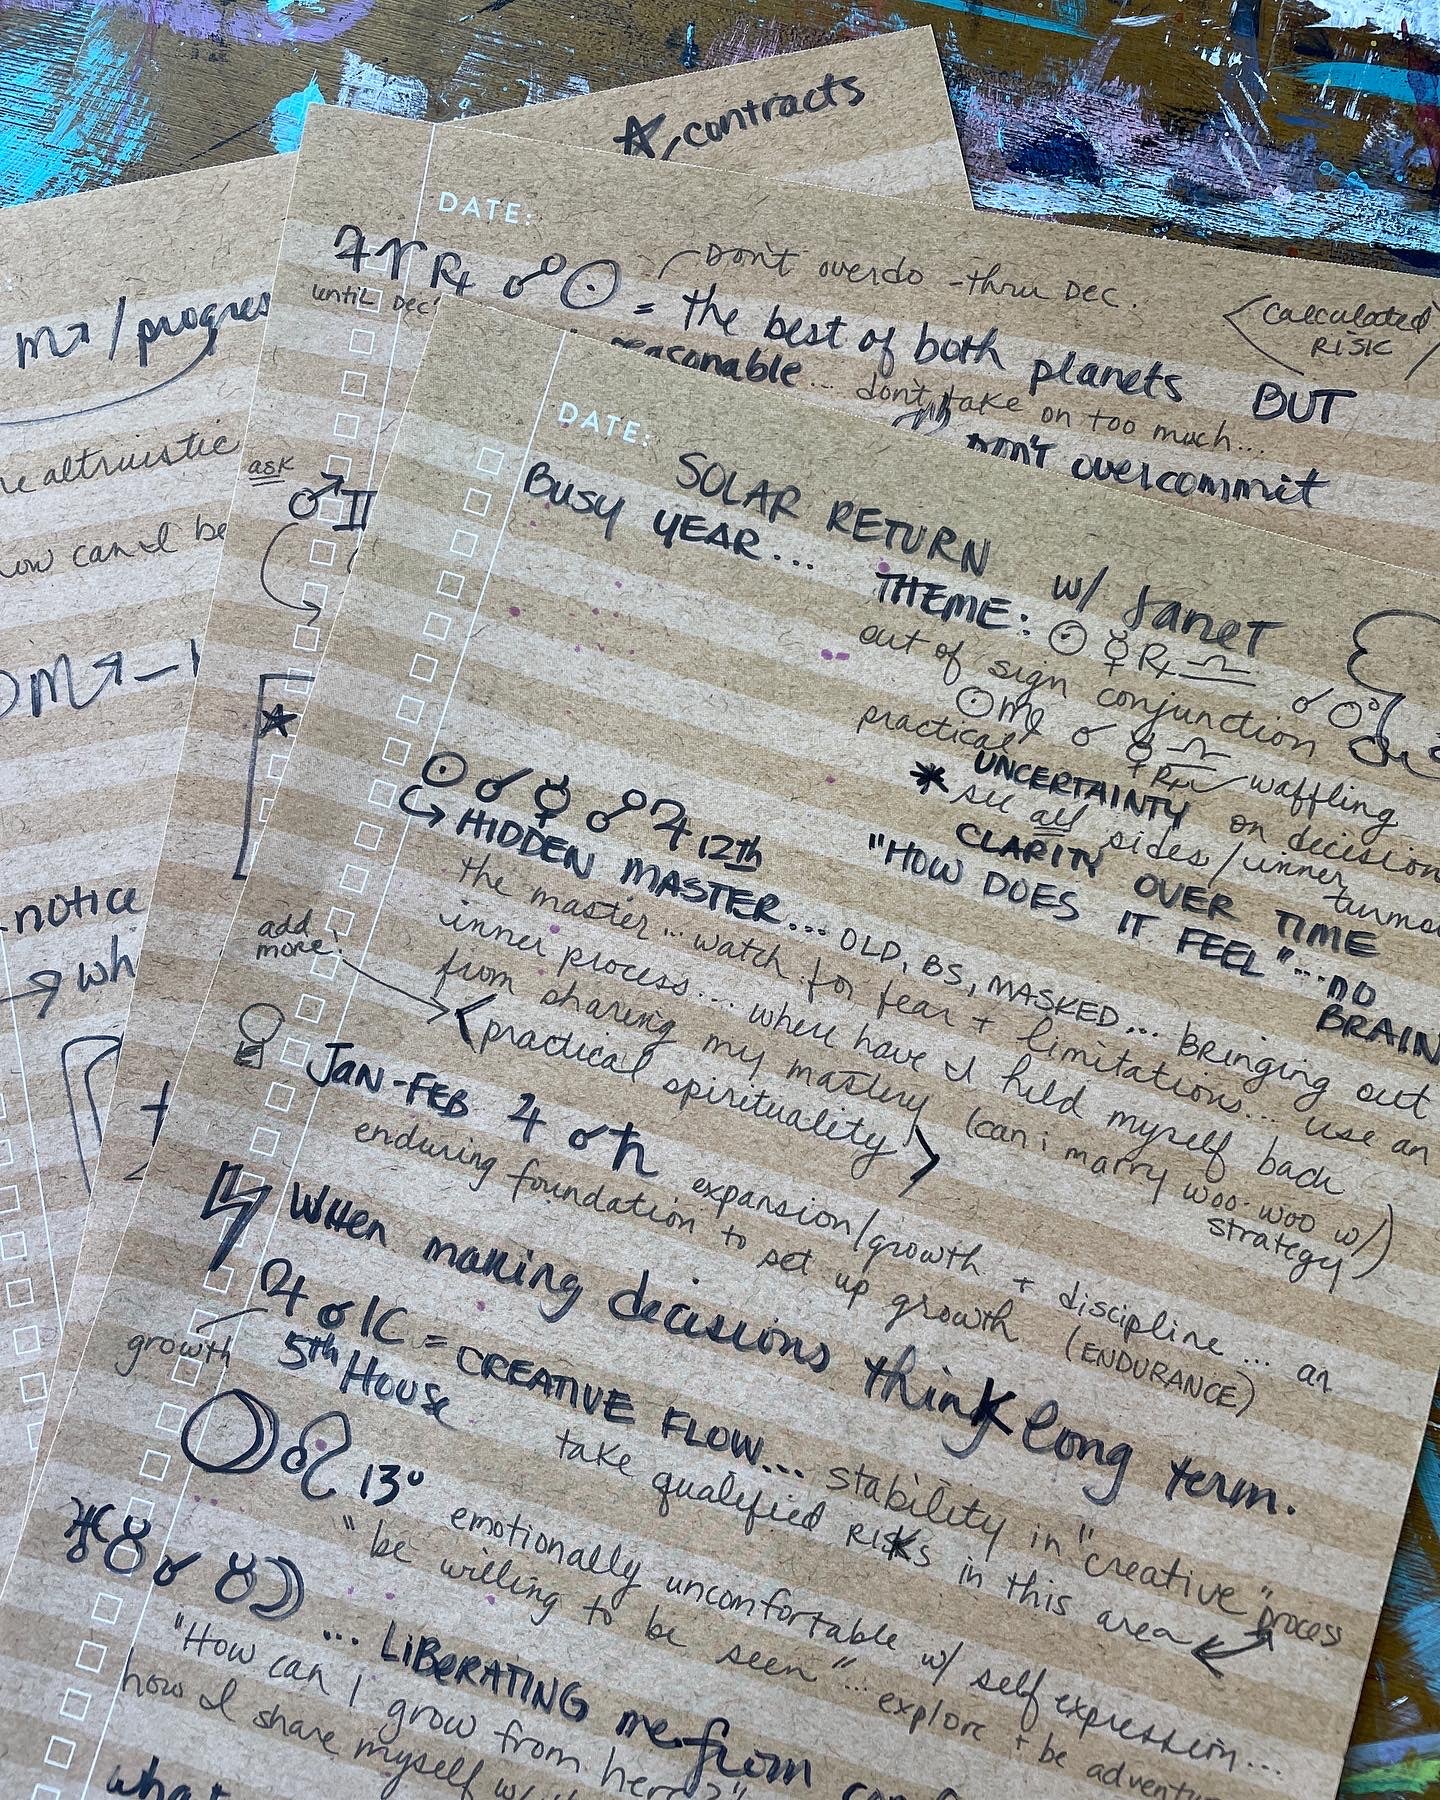 contracts
DATE:
♃ ♈ ℞ ☍ ☉
until Dec!
Don't overdo - thru Dec.
= the best of both planets BUT
<calculated RISK
reasonable... don't take on too much...
don't overcommit
m↗/progres
altruistic
ask
♂ ♊
how can I be
notice
wh
DATE:
SOLAR RETURN w/ Janet
BUSY YEAR...
THEME: ☉ ☿ ℞ ♎
out of sign conjunction
☉ ♍ ☌ ☿ ♎ ℞
practical
waffling
UNCERTAINTY on decision
* see all sides/inner
CLARITY OVER TIME
"HOW DOES IT FEEL"... no
BRAIN
☉ ☌ ☿ ☍ ♃ 12th
↳ HIDDEN MASTER... OLD, BS, MASKED... Bringing out
the master... watch for fear + limitations... use an
inner process... where have I held myself back
from sharing my mastery (can i marry woo-woo w/
strategy)
add more!
<practical spirituality>
Jan-Feb ♃ ☌ ♄ expansion/growth + discipline... an
enduring foundation to set up growth (ENDURANCE)
When making decisions think long term.
♃ ☌ IC = CREATIVE FLOW... stability in "creative" process
growth
5th House
take qualified RISKS in this area
♌ 13° emotionally uncomfortable w/ self expression...
"be willing to be seen"... explore + be
♅ ♉ ☌ ♉ ☽ ... LIBERATING me from
"How can I grow from here?"
how I share myself w/
what